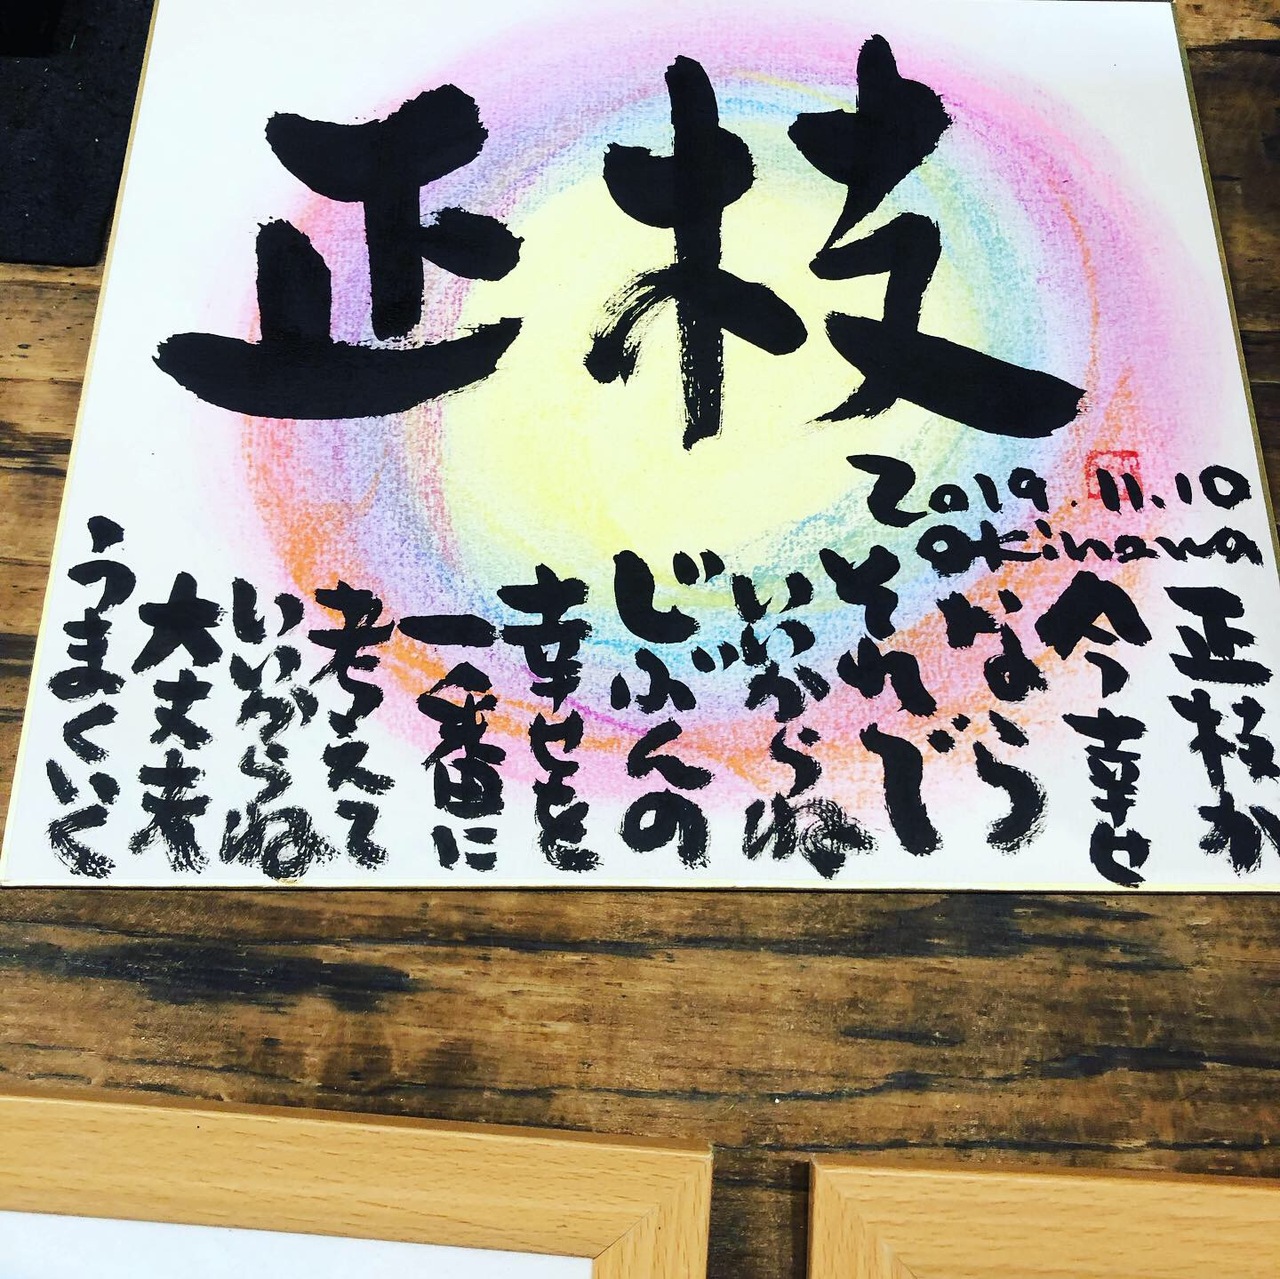 正枝
2019.11.10
okinawa
正枝が
今幸せ
なら
それで
いいからね
じぶんの
幸せを
一番に
考えて
いいからね
大丈夫
うまくいく